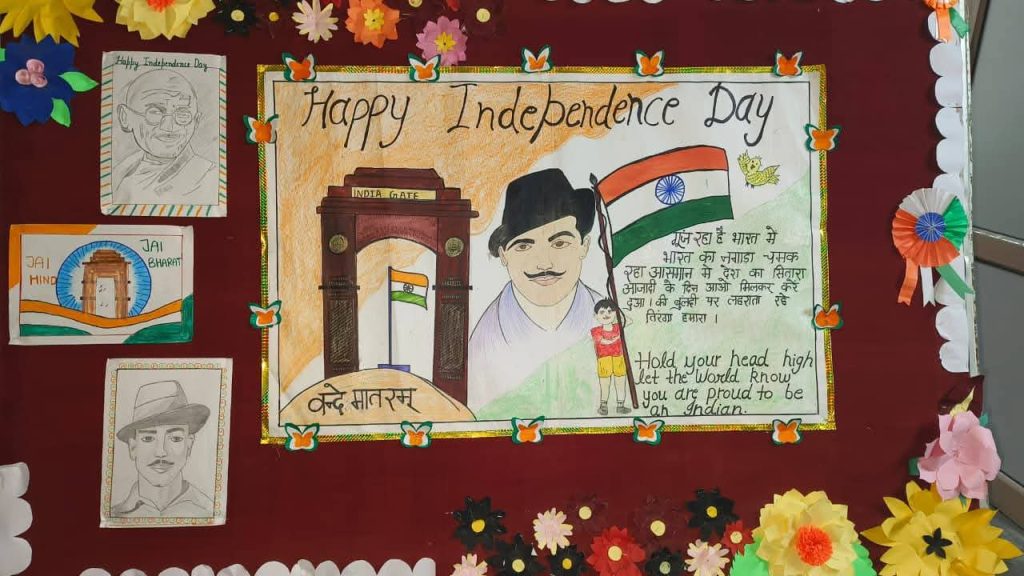 Happy Independence Day
Happy Independence Day
INDIA GATE
JAI HIND
JAI BHARAT
गूंज रहा है भारत मे
भारत का नगाडा चमक
रहा आसमान मे देश का सितारा
आजादी के दिन आओ मिलकर करे
दुआ । की बुलंदी पर लहराता रहे
तिरंगा हमारा ।
Hold your head high
let the World know
you are proud to be
an Indian.
वन्दे मातरम्